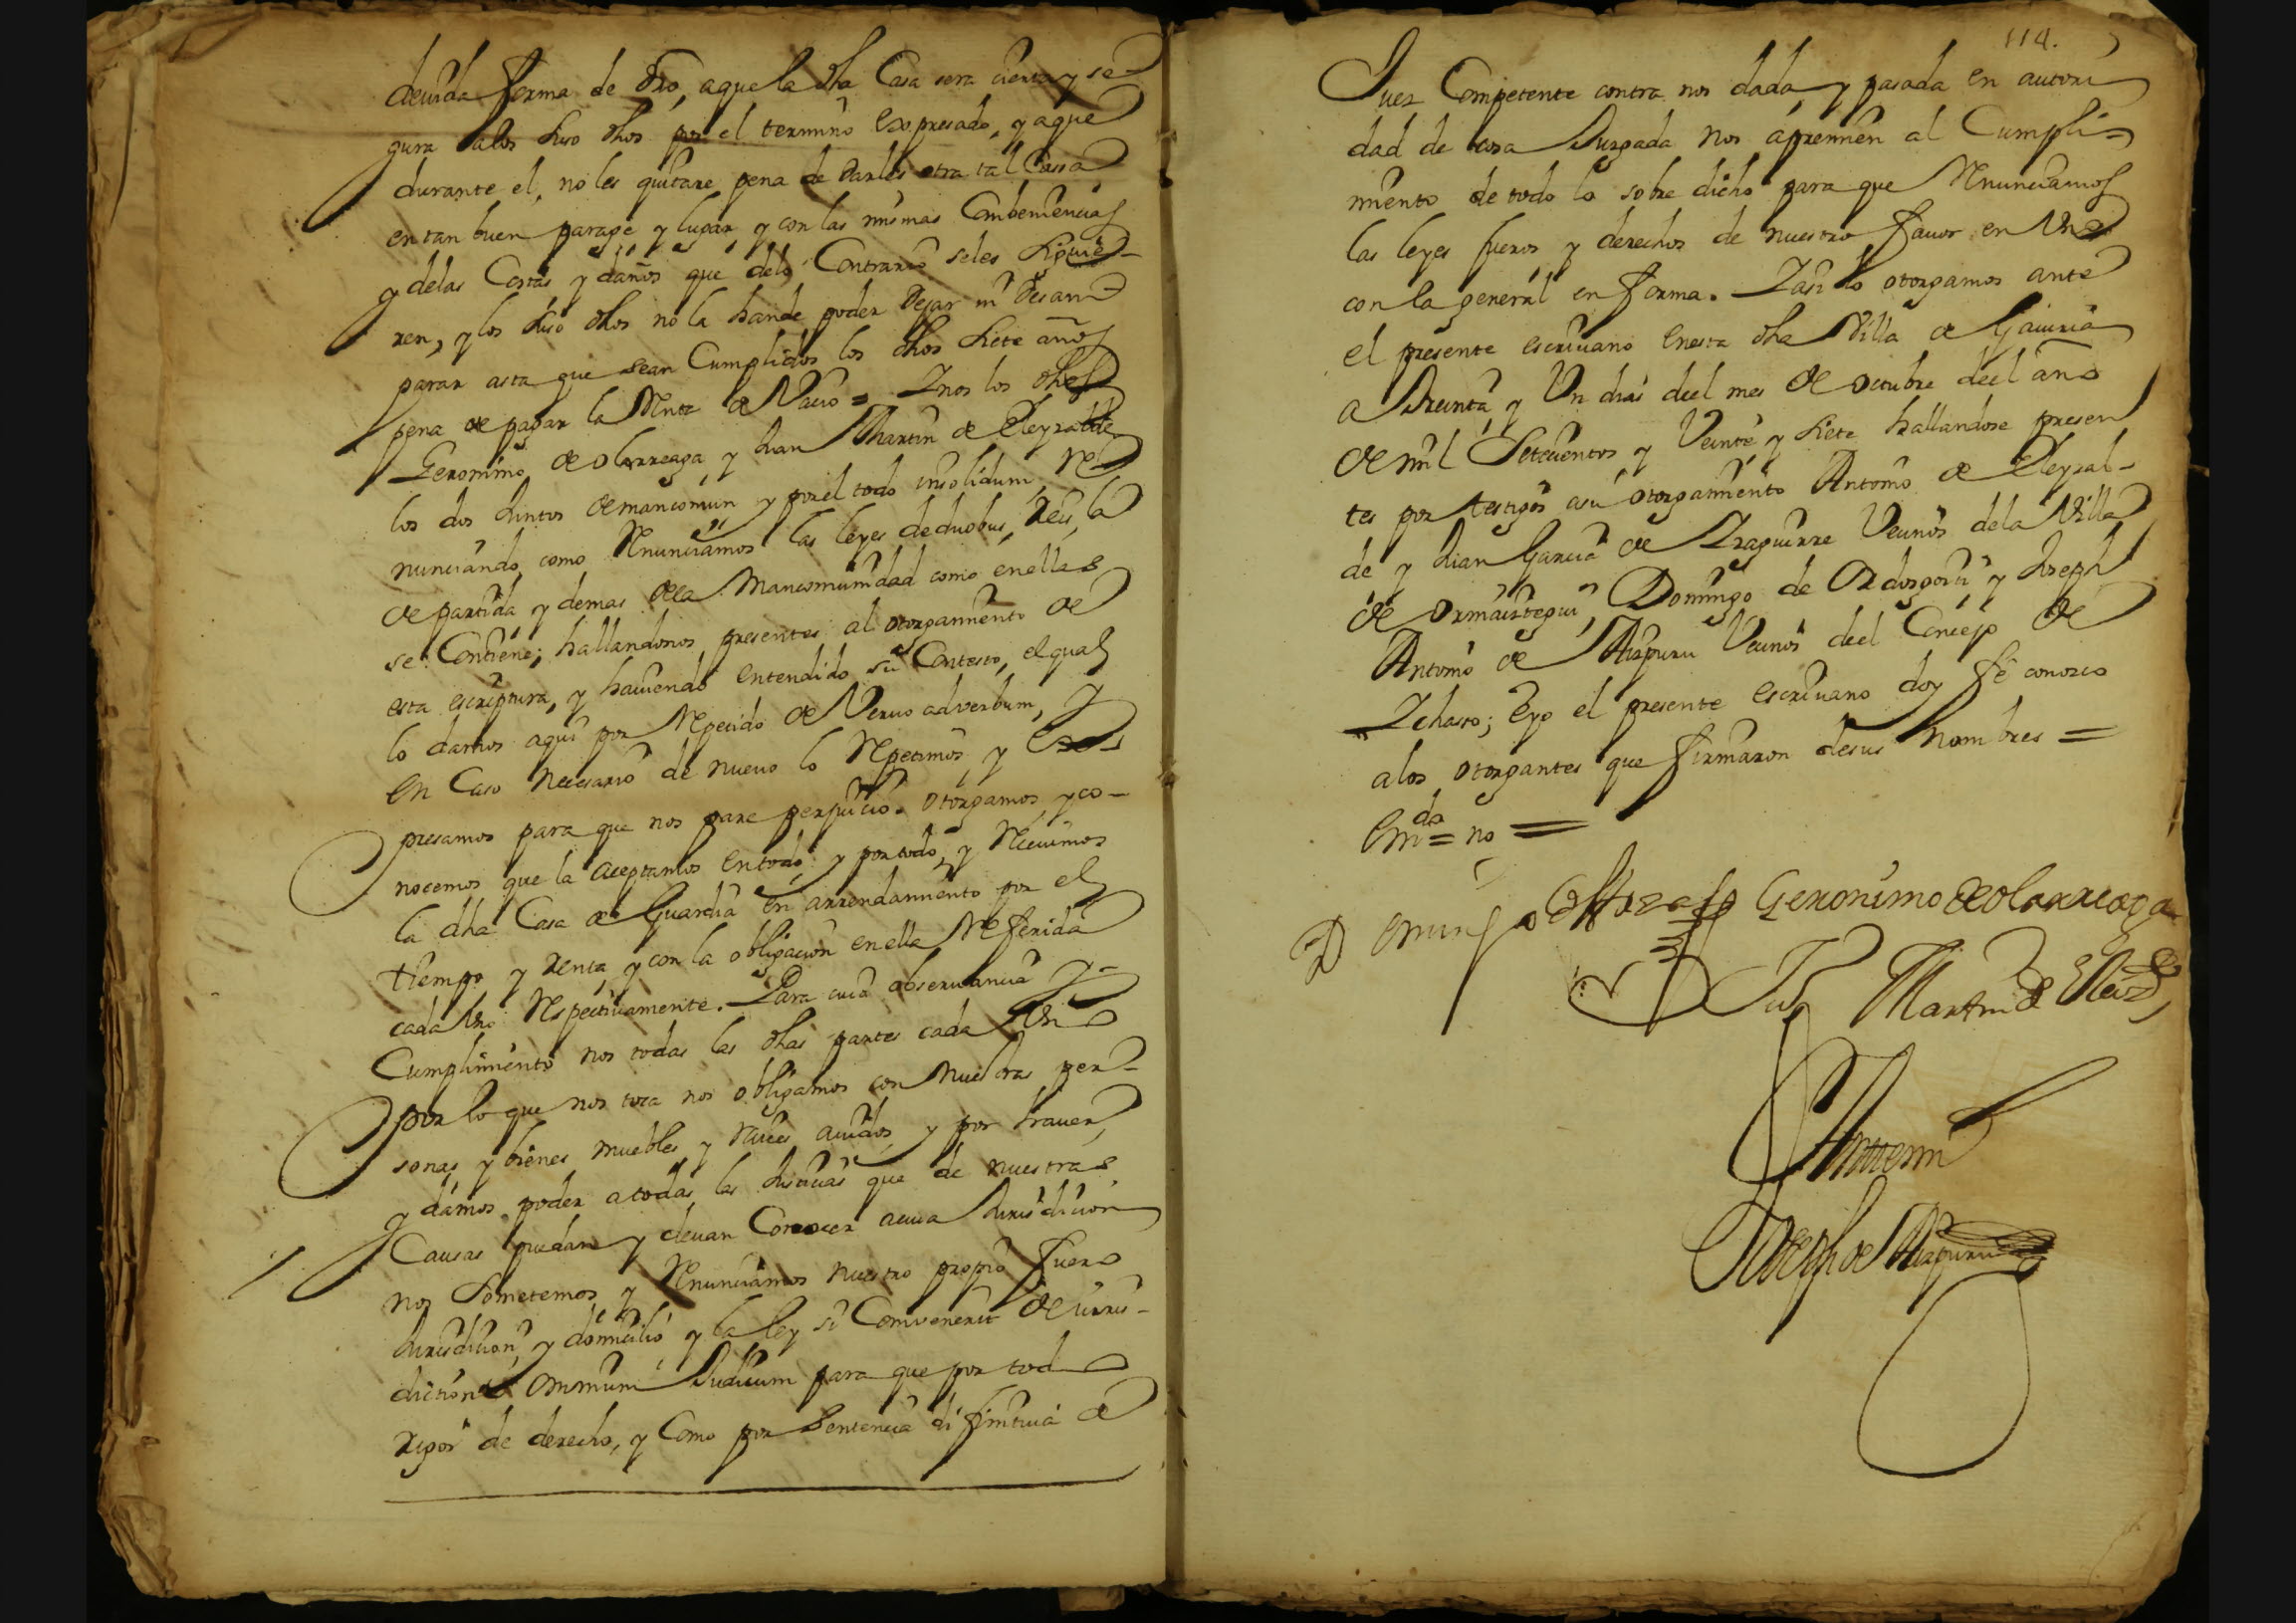 deuida forma de dro, aque la dha Casa sera cierta y se-
gura alos suso dhos por el termino expresado, y aque
durante el, no les quitare pena de darles otra tal Cassa
en tan buen parage y lugar y con las mismas Combeniencias
y delas Costas y daños que delo Contrario seles siguie-
ren, y los suso dhos no la hande poder dejar ni desam-
parar asta que sean Cumplidos los dhos siete años
pena de pagar la Renta de Vacio = Y nos los dhos
Geronimo de olarreaga y Juan Martin de Eleyzalde
los dos Juntos demancomun y por el todo insolidum, re-
nunciando, como Renunciamos las leyes deduobus, Reis, la
de partida y demas dela Mancomunidad como enellas
se Contiene; hallandonos presentes al otorgamiento de
esta escriptura, y hauiendo entendido su Contesto, el qual
lo damos aqui por Repetido de Veruo adverbum, y
en Caso necesario de nueuo lo Repetimos y Ex-
presamos para que nos pare perjuicio. otorgamos, y co-
nocemos que la aceptamos entodo, y por todo, y Reciuimos
la dha Casa de Guardia en arrendamiento por el
tiempo y renta, y con la obligacion enella Referida
cada Uno Respectiuamente. Para cuia obseruancia y-
Cumplimiento nos todas las dhas partes cada Uno
por lo que nos toca nos obligamos con nuestras per-
sonas y bienes muebles y raices auidos y por hauer,
y damos poder a todas las Justicias que de nuestras
Causas puedan y deuan Conocer acuia Jurisdicion
nos sometemos y Renunciamos nuestro propio fuero
Jurisdicion y domicilio y la ley si Convenerit de iuris-
dictione omnium Judicum para que por todo
rigor de derecho, y Como por sentencia difinitiua de
114.
Juez Competente contra nos dada y pasada en autori
dad de cosa Juzgada nos apremien al Cumpli-
miento de todo lo sobre dicho para que Renunciamos
las leyes fueros y derechos de nuestro fauor en Uno
con la general en forma. Y asi lo otorgamos ante
el presente escriuano enesta dha Villa de Gauiria
a treinta y Un dias deel mes de octubre deel año
de mil Setecientos y Veinte y siete hallandose presen
tes por testigos asu otorgamiento Antonio de Eleyzal-
de y Juan Garcia de Yraguirre Vecinos dela Villa
de ormaiztegui, Domingo de Ordozgoiti y Joseph
Antonio de Aizpuru Vecinos deel Concejo de
Ychaso; Eyo el presente escriuano doy fe conozco
alos otorgantes que firmaron desus nombres =
Emdo = no =
Domingo Geronimo de olarreaga
Ju Martin de Eleiz
Ante mi
Joseph de Aizpuru